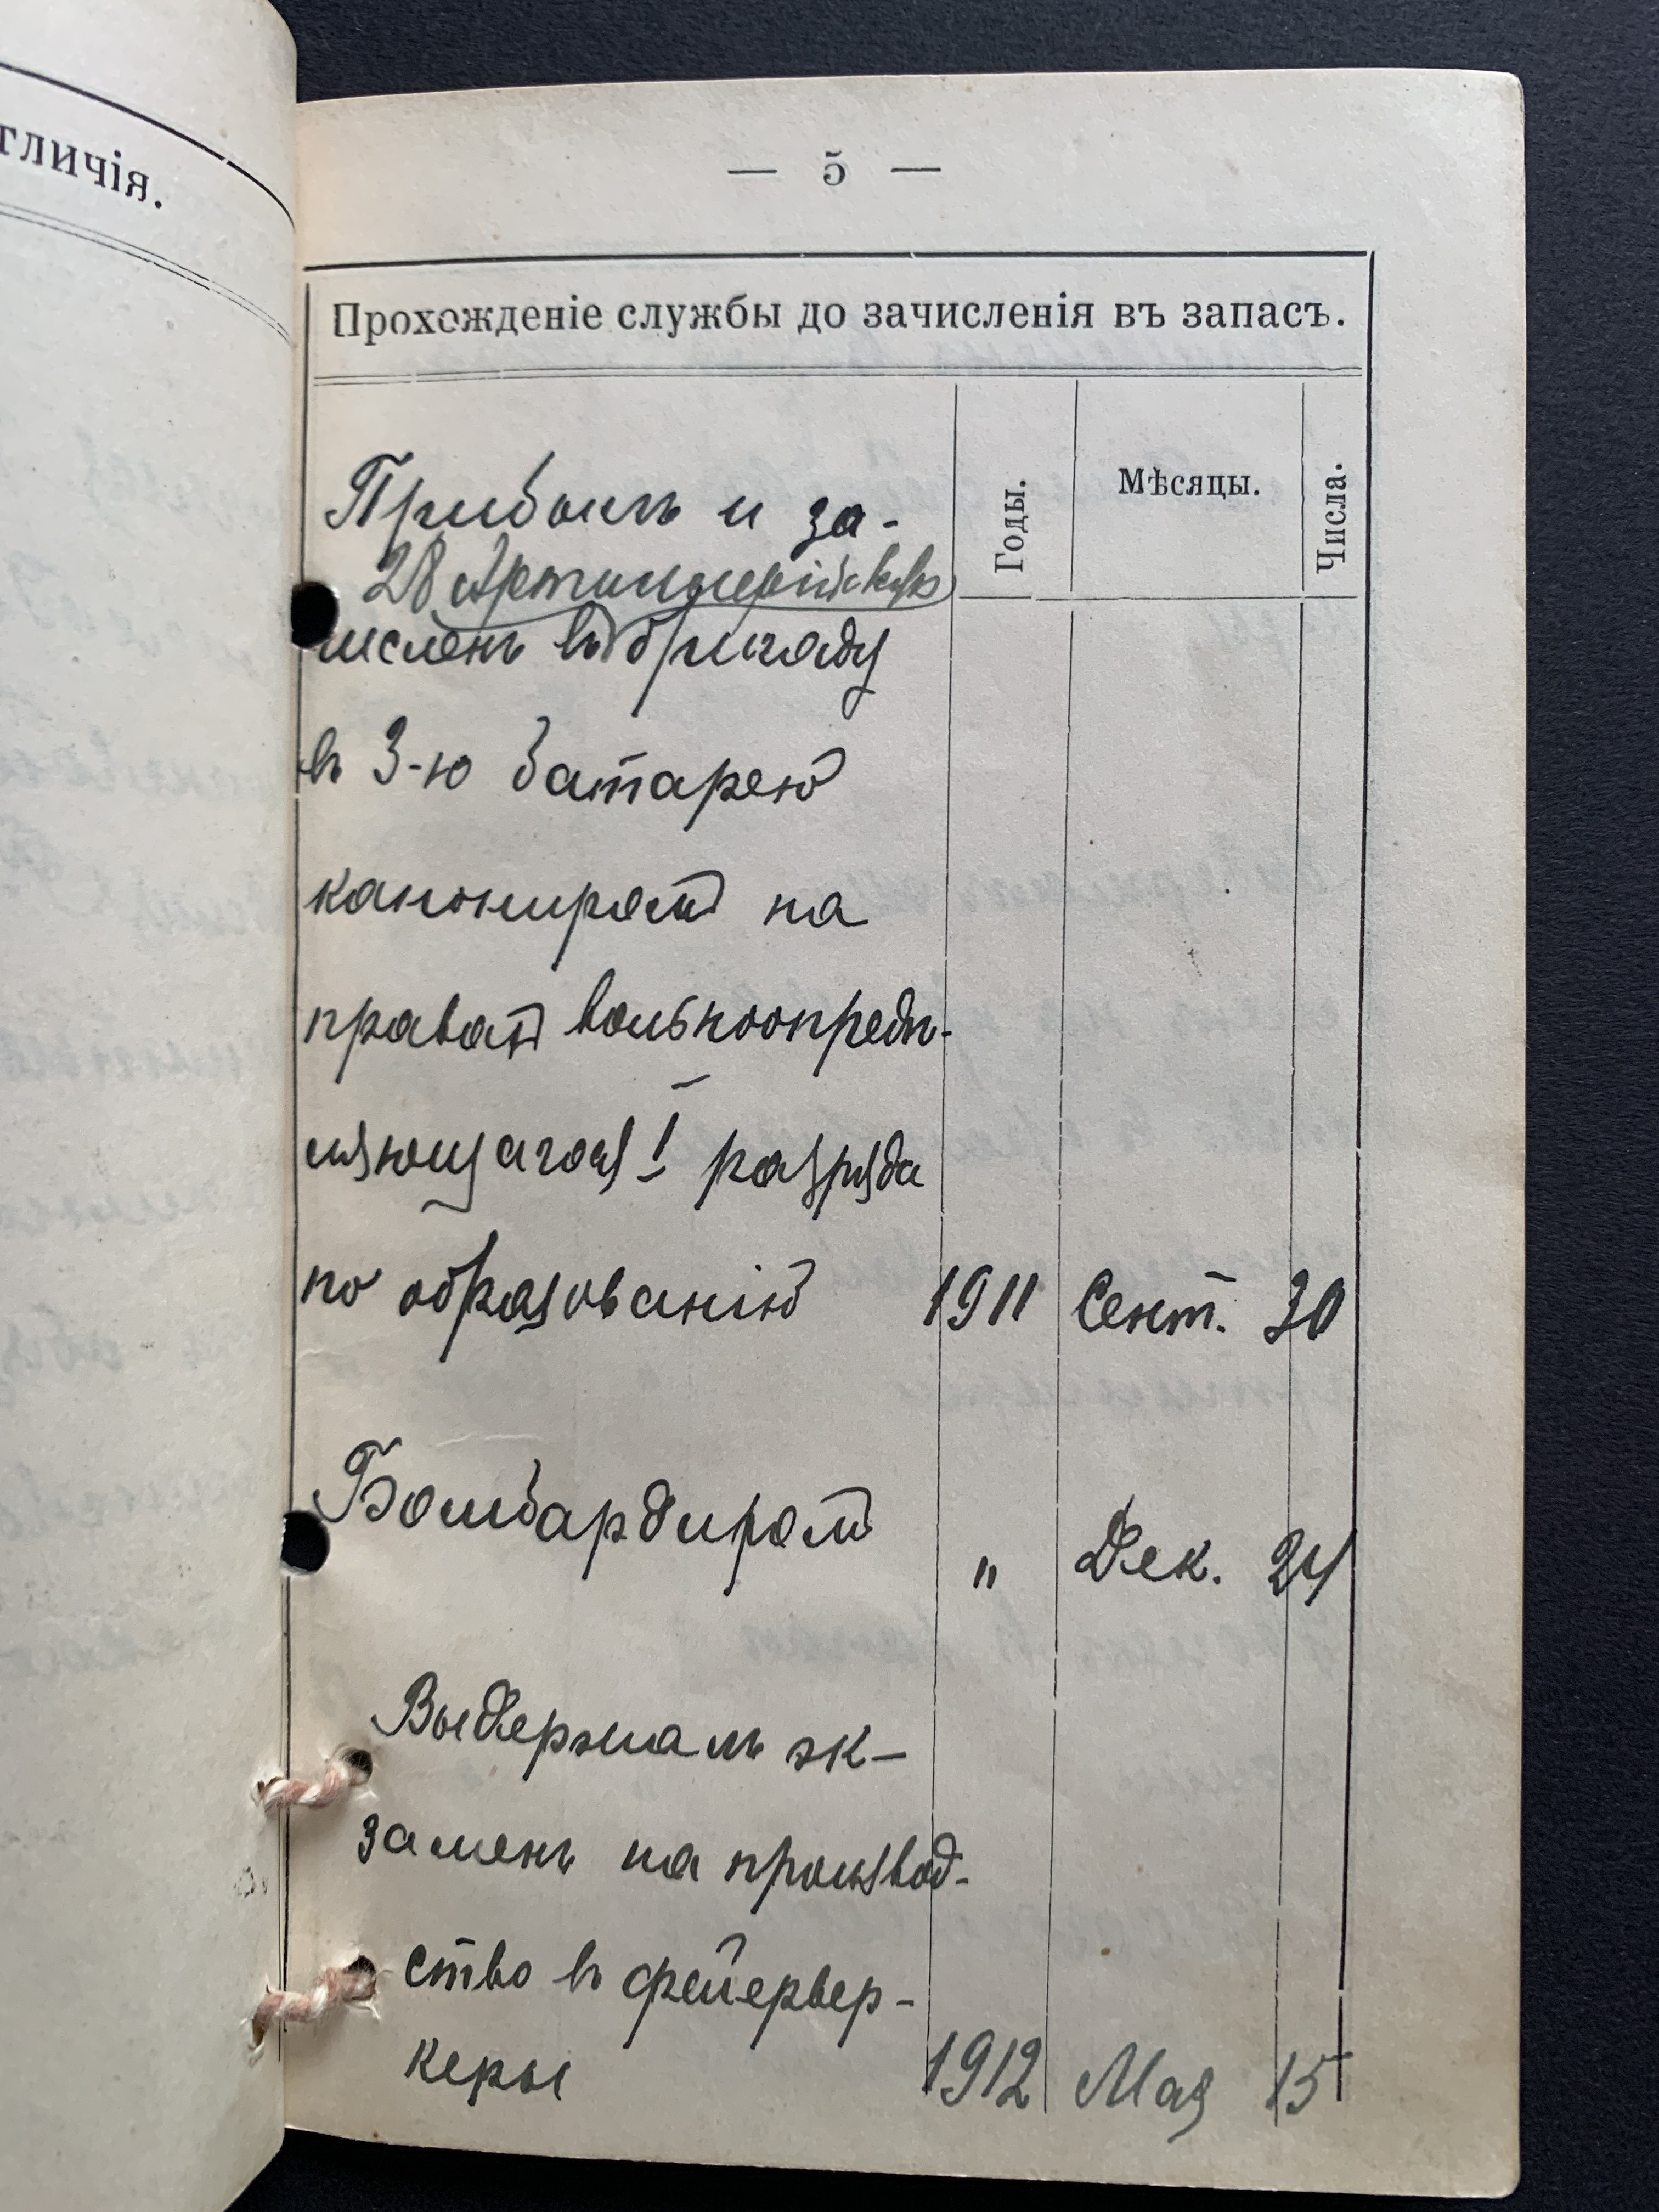 тличія.
— 5 —
Прохожденіе службы до зачисленія въ запасъ.
Годы.
Мѣсяцы.
Числа.
Прибылъ и за-
28 Артиллерійскую
численъ въ бригаду
въ 3-ю батарею
канониромъ на
правахъ вольноопредѣ-
ляющагося I разряда
по образованію 1911 Сент. 30
Бомбардиромъ " Дек. 24
Выдержалъ эк-
заменъ на производ-
ство въ фейервер-
керы 1912 Мая 15